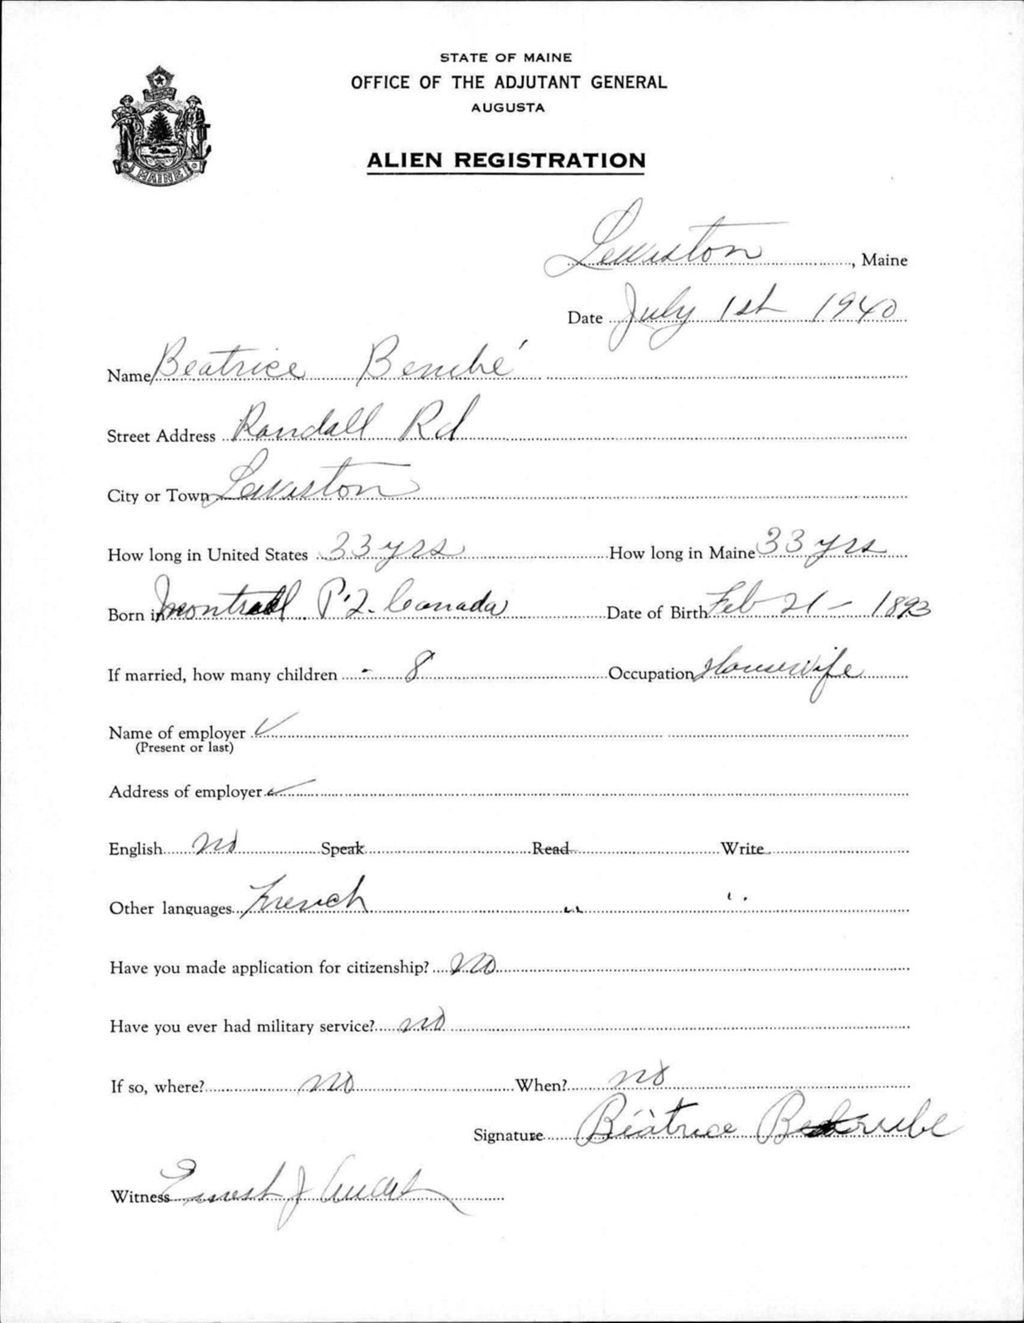 STATE OF MAINE
OFFICE OF THE ADJUTANT GENERAL
AUGUSTA
MAINE
ALIEN REGISTRATION
Lewiston, Maine
Date July 1st 1940
Name Beatrice
Street Address Randall Rd
City or Town Lewiston
How long in United States 33 yrs How long in Maine 33 yrs
Born in Montreal P.Q. Canada Date of Birth Feb 21 - 1893
If married, how many children - 8 Occupation Housewife
Name of employer ✓
(Present or last)
Address of employer ✓
English no Speak Read Write
Other languages French " "
Have you made application for citizenship? No
Have you ever had military service? no
If so, where? no When? no
Signature Béatrice
Witness Ernest J Audet